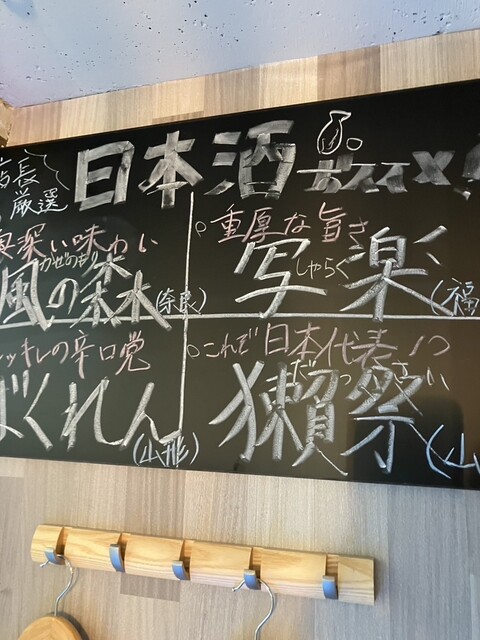 店長
厳選
日本酒 オススメ
奥深い味わい
かぜのもり
風の森(奈良)
重厚な旨さ
しゃらく
写楽(福
ッキレの辛口党
ばくれん(山形)
これぞ日本代表!?
だっさい
獺祭(山